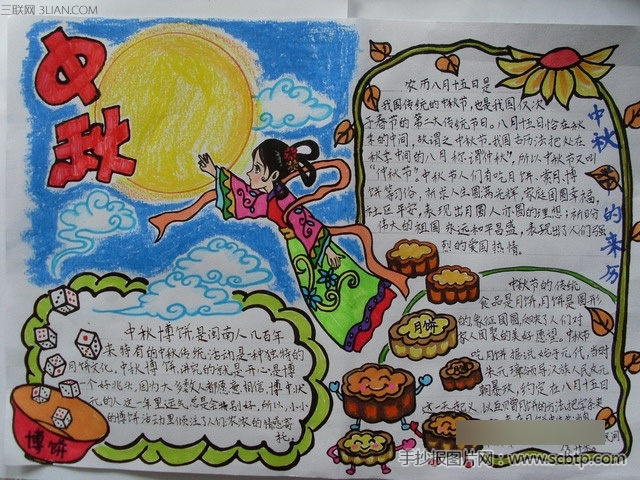 三联网 3LIAN.COM
中秋
中秋的来历
农历八月十五日是
我国传统的中秋节,也是我国仅次
于春节的第二大传统节日。八月十五恰在秋
季的中间,故谓之中秋节。我国古历法把处在
秋季中间的八月称谓"仲秋",所以中秋节又叫
"仲秋节"。中秋节人们有吃月饼、赏月、博
饼等习俗,祈求人生圆满光辉,家庭团圆幸福,
社区平安,表现出月圆人亦圆的理想;祈盼
伟大的祖国永远和平昌盛,表现出了人们强
烈的爱国热情。
中秋节的传统
食品是月饼,月饼是圆形
的,象征团圆,反映了人们对
家人团聚的美好愿望。中秋节
吃月饼据说始于元代,当时
朱元璋领导汉族人民反元
朝暴政,约定在八月十五日
这一天起义
月饼
中秋博饼,是闽南人几百年
来特有的中秋传统活动是一种独特的
月饼文化。中秋博饼,讲究的就是开心是博
一个好兆头,因为大多数人都愿意相信,博中状
元的人这一年里运气总是会特别好。所以,小小
的博饼活动里倾注了人们浓浓的
托。
博饼
手抄报图片网:www.scbtp.com